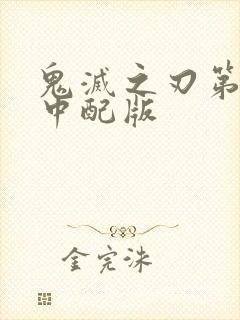 鬼滅之刃第
中配版
金完洙